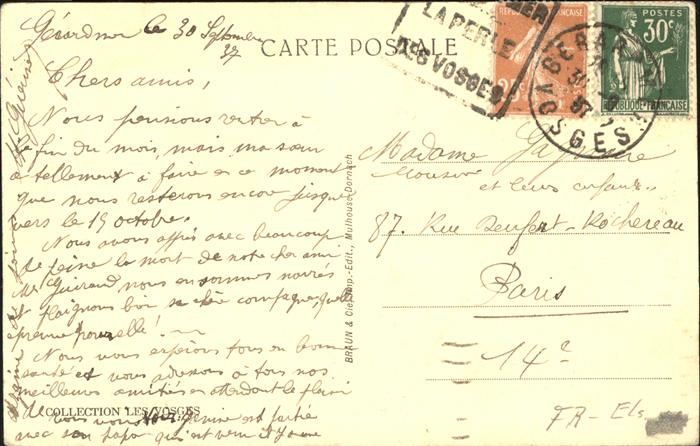 Gérardmer le 30 Septembre
37
CARTE POSTALE
Chers amis,
Nous pensions rentrer à
la fin du mois, mais ma sœur
a tellement à faire en ce moment
que nous resterons encore jusque
vers le 15 octobre.
Nous avons appris avec beaucoup
de peine la mort de notre cher ami
Mr Guérand, nous en sommes navrés
et plaignons bien sa chère compagne, quelle
épreuve pour elle!
Nous vous espérons tous en bonne
santé et vous adressons à tous nos
meilleures amitiés en attendant le plaisir
de vous
COLLECTION LES VOSGES
avec son papa qui est venu
BRAUN & Cie, Imp.-Edit., Mulhouse-Dornach
LA PERLE
DES VOSGES
REPUBLIQUE FRANÇAISE
25c
POSTES
30c
REPUBLIQUE FRANÇAISE
GERARDMER
VOSGES
Madame
Monsieur
et leurs enfants
87. Rue Denfert-Rochereau
Paris
14e
FR - Els.